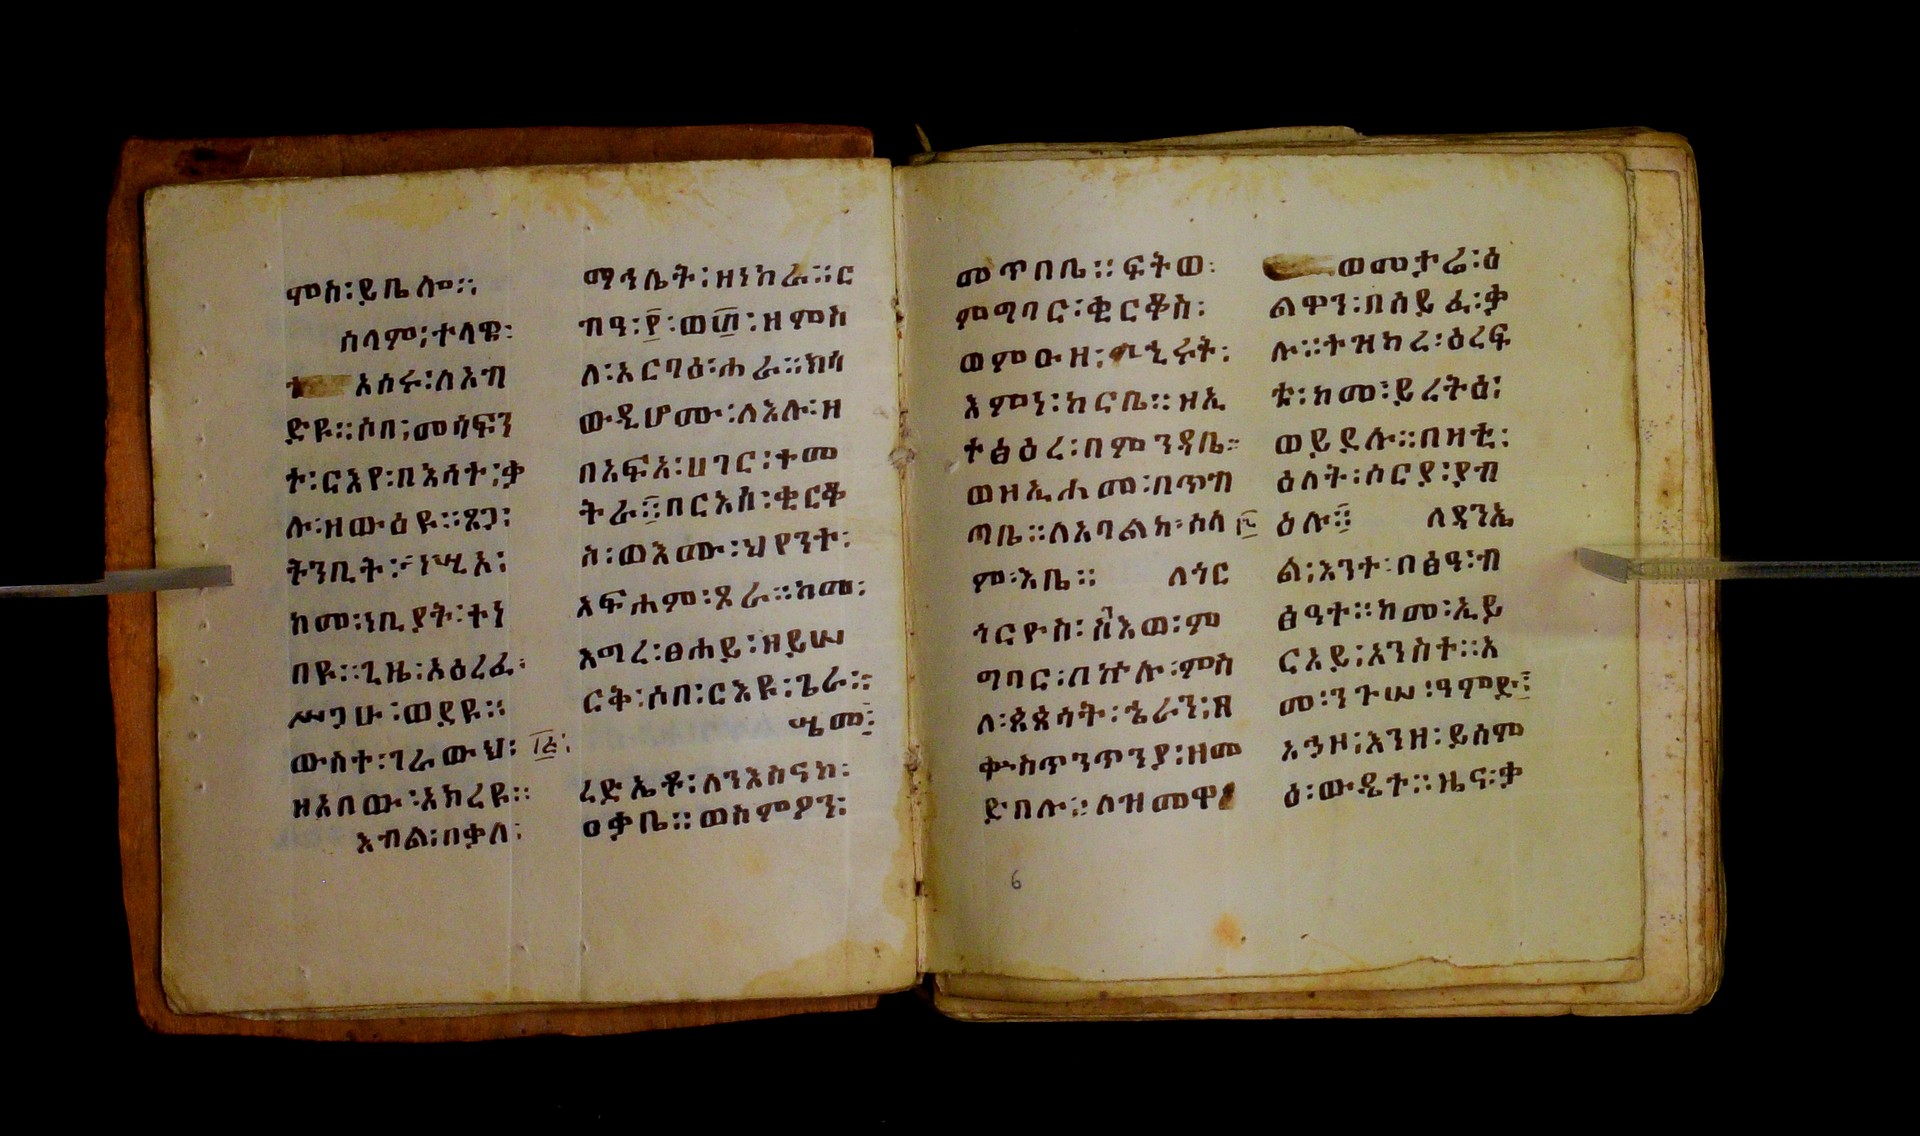 ምስ፡ይቤሎሙ።
ሰላም፡ተላዊ፡
አሰሩ፡ለአብ
ድዩ።ሶበ፡መሳፍን
ት፡ርእየ፡በእሳት፡ቃ
ሉ፡ዘውዕዩ።ጸጋ፡
ትንቢት፡
ከመ፡ነቢያት፡ተነ
በዩ።ጊዜ፡አዕረፈ፡
ሥጋሁ፡ወደዩ።
ውስተ፡ገራውህ፡
ዘአበው፡አክረዩ።
እብል፡በቃለ፡
ማኅሌት፡ዘነከራ።ር
ብዓ፡፻፡ወ፼፡ዘምስ
ለ፡አርባዕ፡ሐራ።ክሳ
ውዲሆሙ፡ለእሉ፡ዘ
በአፍአ፡ሀገር፡ተመ
ትራ።በርእሰ፡ቂርቆ
ስ፡ወእሙ፡ህየንተ፡
አፍሐም፡ጾራ።ከመ፡
እግረ፡ፀሐይ፡ዘይሠ
ርቅ፡ሶበ፡ርእዩ፡ጌራ።
ሜመ፡
ረድኤቶ፡ለንእስናከ፡
ዐቃቤ።ወስምዖን፡
መጥበቤ።ፍትወ፡
ምግባር፡ቂርቆስ፡
ወምዑዘ፡ምኂሩት፡
እምነ፡ከርቤ።ዘኢ
ተፅዕረ፡በምንዳቤ።
ወዘኢሐመ፡በጥብ
ጣቤ።ለአባልከ፡ሰላ
ም፡እቤ። ለጎር
ጎርዮስ፡ሽእወ፡ም
ግባር፡በኵሉ፡ምስ
ለ፡ጳጳሳት፡ኄራን፡ዘ
ቍስጥንጥንያ፡ዘመ
ድበሉ።ለዝመዋዕ
ወመታሬ፡ዕ
ልዋን፡በሰይፈ፡ቃ
ሉ።ተዝከረ፡ዕረፍ
ቱ፡ከመ፡ይረትዕ፡
ወይደሉ።በዛቲ፡
ዕለት፡ሶርያ፡ያብ
ዕሉ። ለዳንኤ
ል፡እንተ፡በፅዓ፡ብ
ፅዓተ።ከመ፡ኢይ
ርአይ፡አንስተ።አ
መ፡ንጉሠ፡ዓምድ፡
አኃዞ፡እንዘ፡ይሰም
ዕ፡ውዴተ።ዜና፡ቃ
6